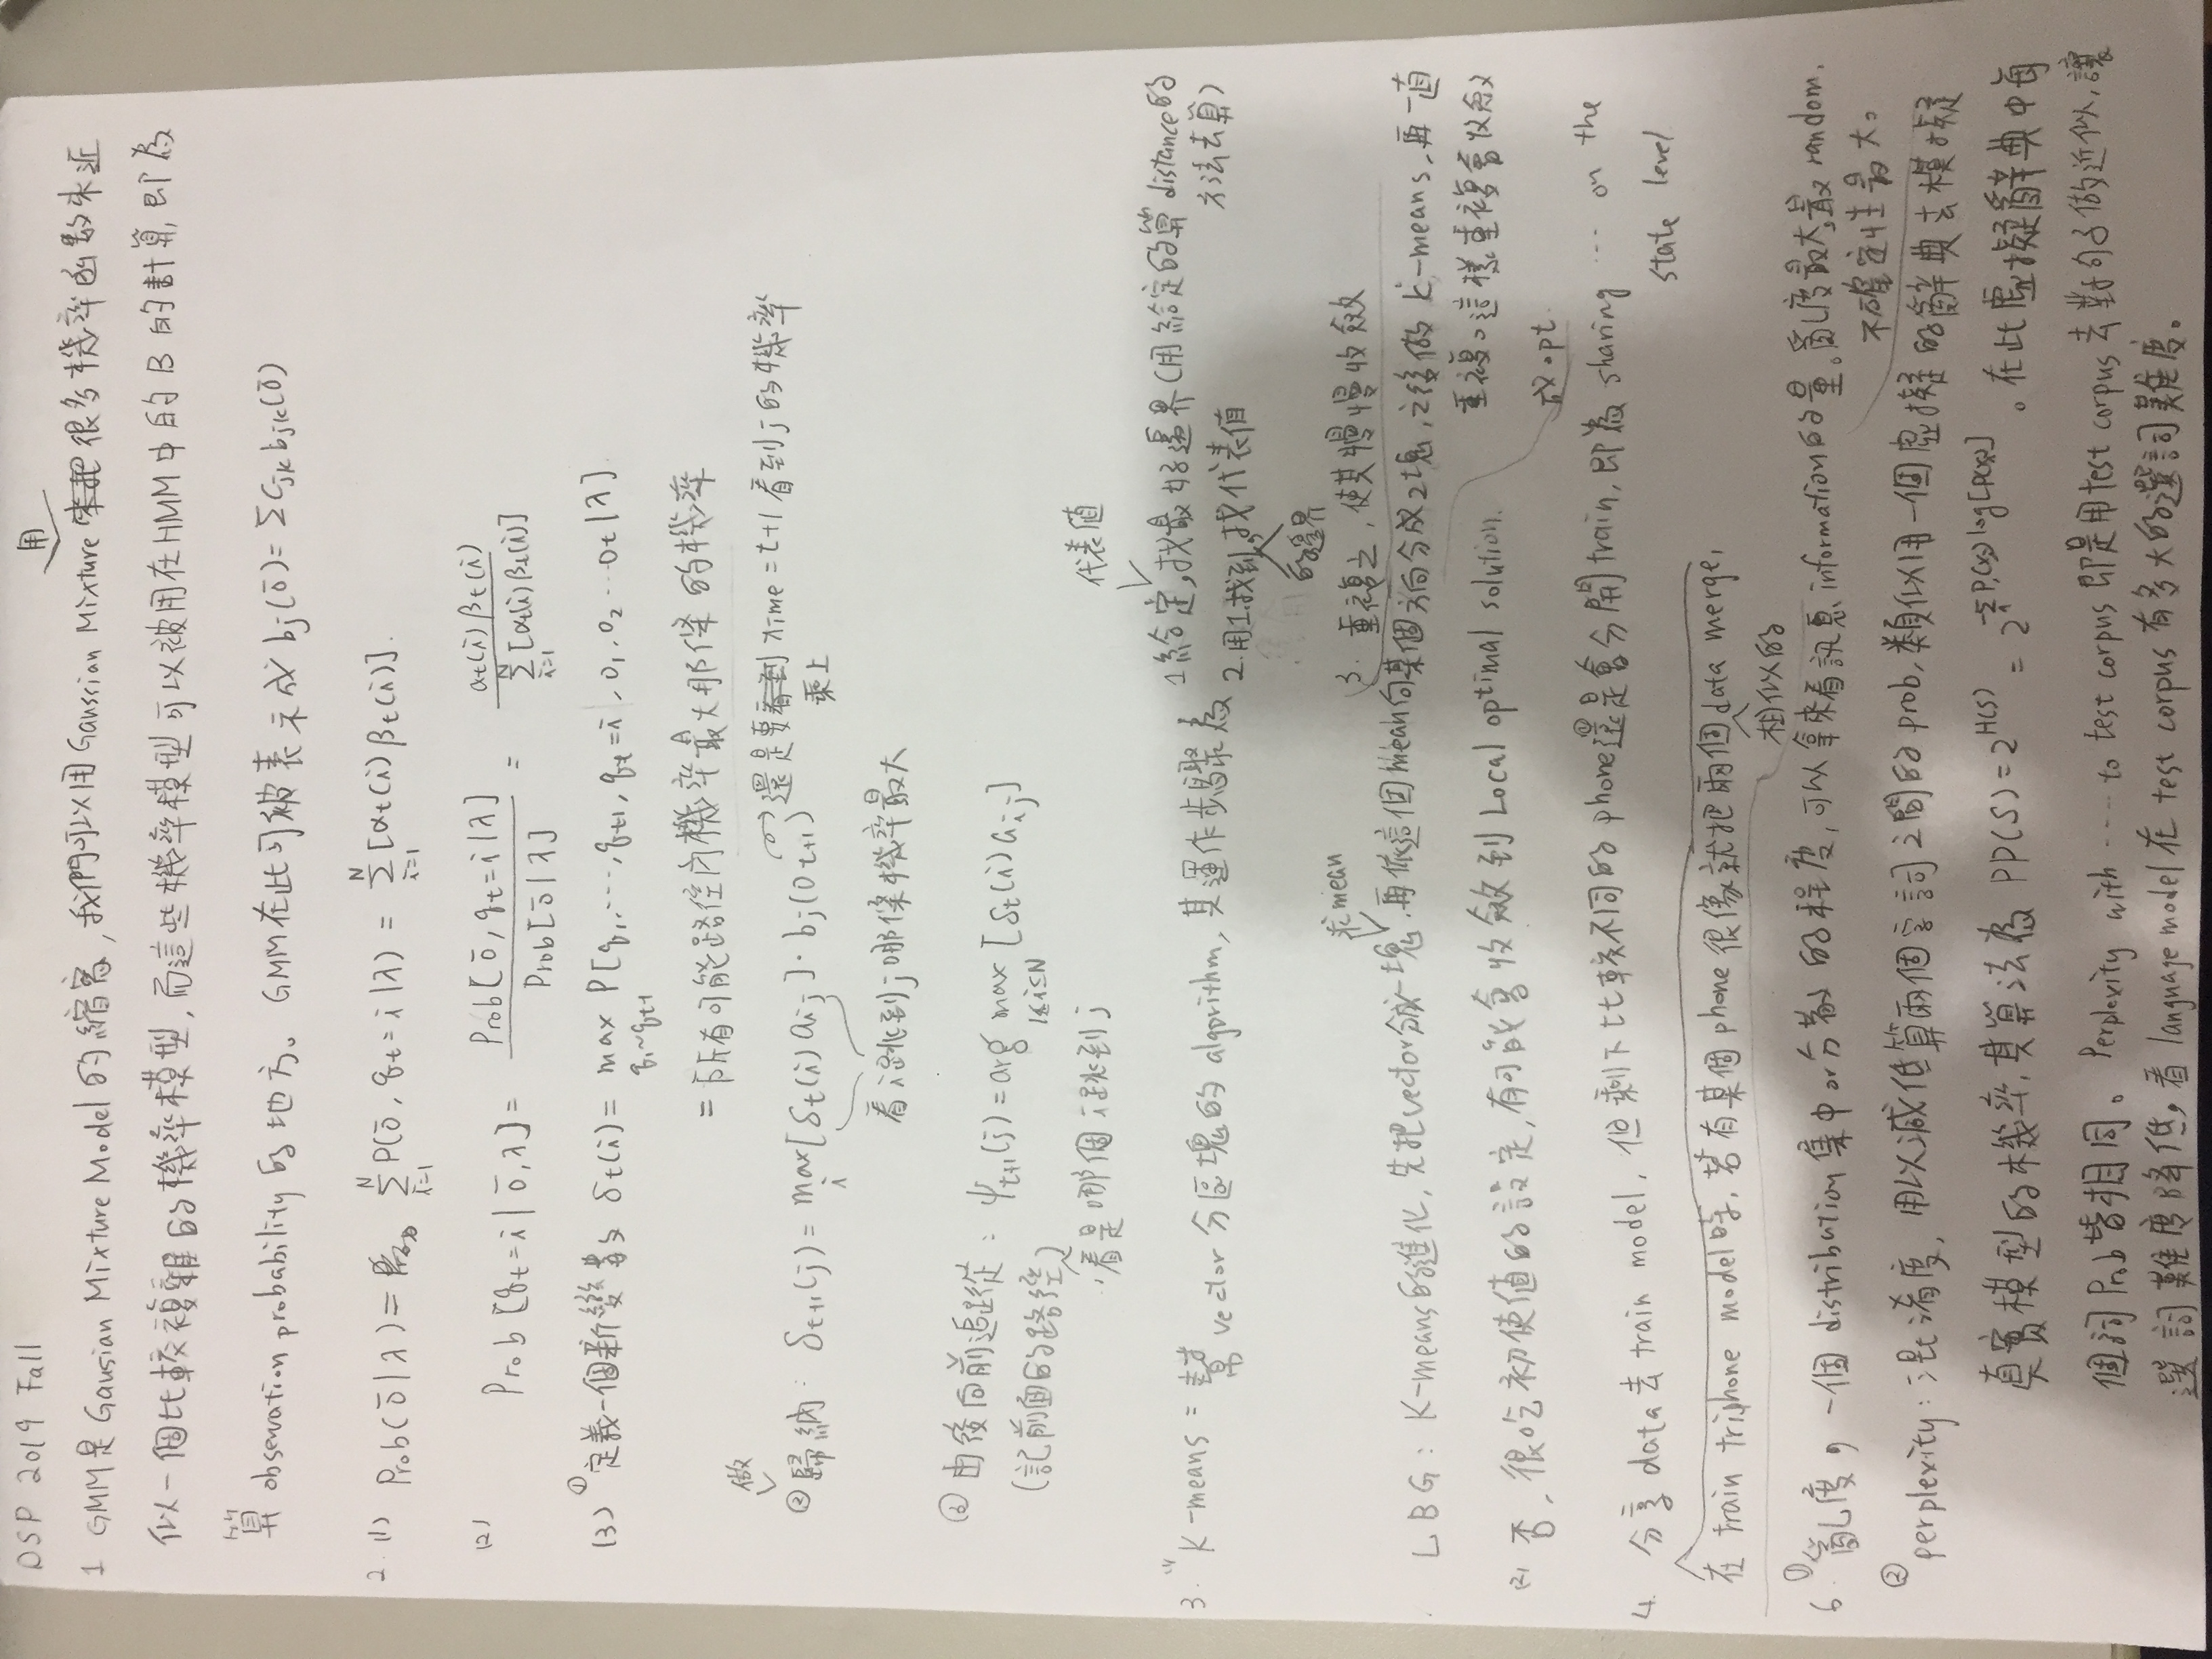 DSP 2019 Fall
用
1 GMM是 Gausian Mixture Model 的縮寫, 我們可以用 Gaussian Mixture 來把 很多機率函數來近
似一個比較複雜的機率模型, 而這些機率模型可以被用在HMM中的 B 的計算, 即為
算 observation probability 的地方。 GMM在此可被表示成 bj(ō) = Σ Cjk bjk(ō)
2. (1) Prob(ō|λ) = Σ_{i=1}^{N} P(ō, qt = i|λ) = Σ_{i=1}^{N} [αt(i) βt(i)].
(2) Prob [qt = i | ō, λ] = Prob[ō, qt = i|λ] / Prob[ō|λ] = αt(i) βt(i) / Σ_{i=1}^{N} [αt(i) βt(i)]
(3) ① 定義一個新變數 δt(i) = max_{q1~qt-1} P[q1, ..., qt-1, qt = i, o1, o2 ... ot|λ].
= 所有可能路徑內機率最大那條的機率
做
② 歸納: δt+1(j) = max_i [δt(i) aij] · bj(Ot+1) 還是要看到 time = t+1 看到 j 的機率
乘上
看 i 跳到 j 哪條機率最大
③ 由後向前追蹤: ψt+1(j) = arg max_{1≤i≤N} [δt(i) aij]
(記前面的路徑)
看是哪個 i 跳到 j
代表值
3. (1) K-means = 幫 vector 分區塊的 algorithm, 其運作步驟為 1 給定, 找最好邊界(用給定的算 distance的
方法去算)
2. 用1.找到, 找代表值
的邊界
3. 重複之, 使其慢慢收斂
求mean
LBG: K-means的進化, 先把vector分成一塊, 再依這個mean向某個方向分成2塊, 之後做 k-means, 再一直
重複。這樣重複會收斂
成opt.
(2) 否, 很吃初使值的設定, 有可能會收斂到 Local optimal solution.
4. 分享 data 去 train model, 但剩下比較不同的 phone還是會分開train, 即為 sharing ... on the
state level
在 train triphone model時, 若有某個 phone 很像就把兩個data merge,
相似的
6. ① 亂度, 一個 distribution 集中 or 分散的程度, 可以拿來看訊息 information的量。亂度最大,最 random,
不確定性最大。
② perplexity: 混淆度, 用以減低算兩個字詞之間的 prob, 類似用一個虛擬的辭典去模擬
真實模型的機率, 其算法為 PP(S) = 2^{H(S)} = 2^{-Σ_i P(xi) log[P(xi)]} 。在此虛擬辭典中每
個詞 Prob皆相同。 Perplexity with .... to test corpus 即是用test corpus 去對句子做近似, 讓
選詞難度降低, 看 language model 在 test corpus 有多大的選詞難度。